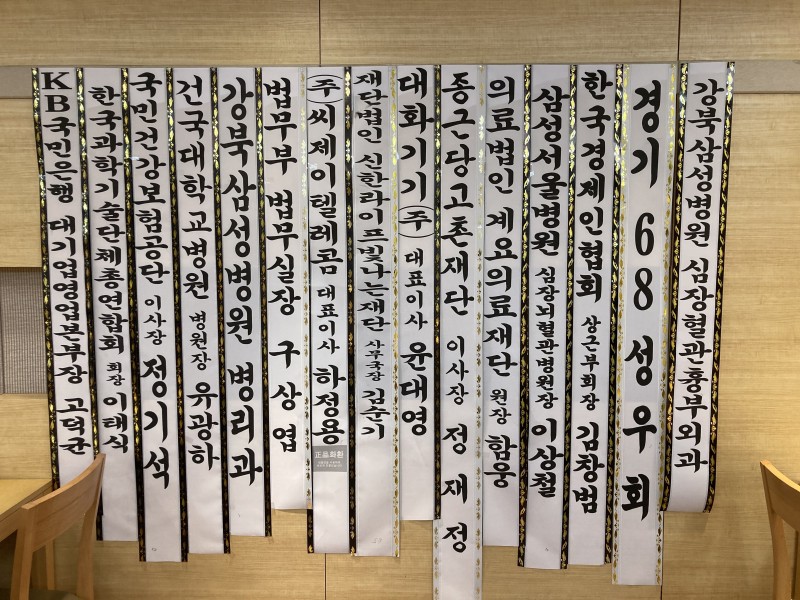 KB국민은행 대기업영업본부장 고덕균
한국과학기술단체총연합회 회장 이태식
국민건강보험공단 이사장 정기석
건국대학교병원 병원장 유광하
강북삼성병원 병리과
법무부 법무실장 구상엽
㈜씨제이텔레콤 대표이사 하정용
正品화환
재단법인 신한라이프빛나는재단 사무국장 김순기
대화기기㈜ 대표이사 윤대영
종근당고촌재단 이사장 정재정
의료법인 계요의료재단 원장 함웅
삼성서울병원 심장뇌혈관병원장 이상철
한국경제인협회 상근부회장 김창범
경기68성우회
강북삼성병원 심장혈관흉부외과